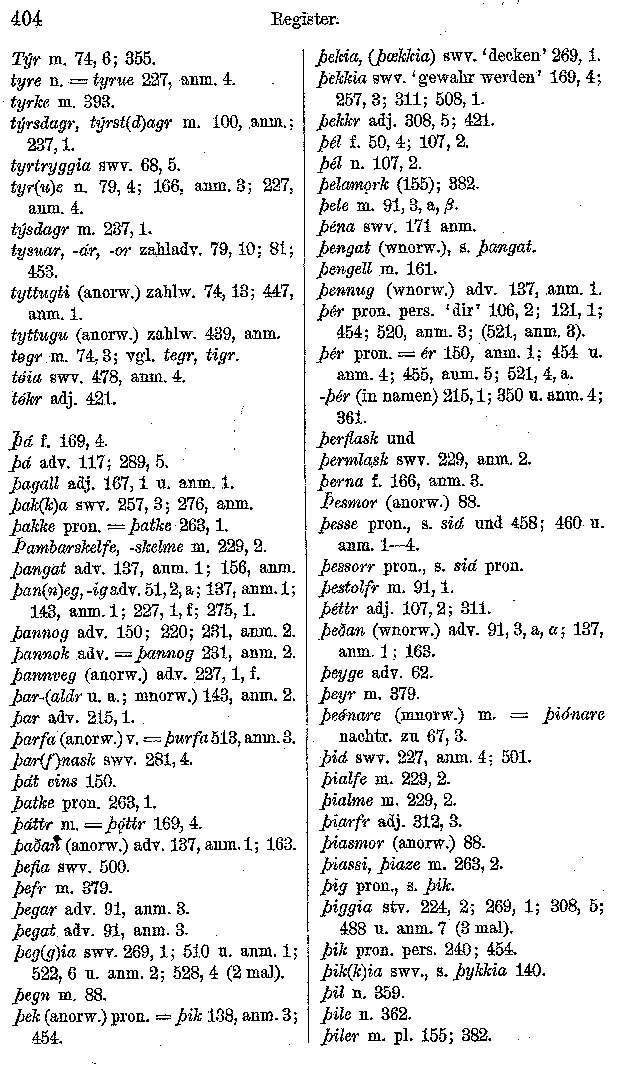 404
Register.
Týr m. 74, 6; 355.
tyre n. = tyrue 227, anm. 4.
tyrke m. 393.
týrsdagr, týrst(d)agr m. 100, anm.;
237, 1.
tyrtryggia swv. 68, 5.
tyr(u)e n. 79, 4; 166, anm. 3; 227,
anm. 4.
týsdagr m. 237, 1.
tysuar, -ár, -or zahladv. 79, 10; 81;
453.
tyttugti (anorw.) zahlw. 74, 13; 447,
anm. 1.
tyttugu (anorw.) zahlw. 439, anm.
tøgr m. 74, 3; vgl. tegr, tigr.
tóia swv. 478, anm. 4.
tókr adj. 421.
Þá f. 169, 4.
þá adv. 117; 289, 5.
þagall adj. 167, 1 u. anm. 1.
þak(k)a swv. 257, 3; 276, anm.
þakke pron. = þatke 263, 1.
Þambarskelfe, -skelme m. 229, 2.
þangat adv. 137, anm. 1; 156, anm.
þan(n)eg, -ig adv. 51, 2, a; 137, anm. 1;
143, anm. 1; 227, 1, f; 275, 1.
þannog adv. 150; 220; 231, anm. 2.
þannok adv. = þannog 231, anm. 2.
þannveg (anorw.) adv. 227, 1, f.
þar-(aldr u. a.; mnorw.) 143, anm. 2.
þar adv. 215, 1.
þarfa (anorw.) v. = þurfa 513, anm. 3.
þar(f)nask swv. 281, 4.
þát eins 150.
þatke pron. 263, 1.
þáttr m. = þǫ́ttr 169, 4.
þaðan (anorw.) adv. 137, anm. 1; 163.
þefia swv. 500.
þefr m. 379.
þegar adv. 91, anm. 3.
þegat adv. 91, anm. 3.
þeg(g)ia swv. 269, 1; 510 u. anm. 1;
522, 6 u. anm. 2; 528, 4 (2 mal).
þegn m. 88.
þek (anorw.) pron. = þik 138, anm. 3;
454.
þekia, (þækkia) swv. 'decken' 269, 1.
þekkia swv. 'gewahr werden' 169, 4;
257, 3; 311; 508, 1.
þekkr adj. 308, 5; 421.
þél f. 50, 4; 107, 2.
þél n. 107, 2.
þelamǫrk (155); 382.
þele m. 91, 3, a, β.
þéna swv. 171 anm.
þengat (wnorw.), s. þangat.
þengell m. 161.
þennug (wnorw.) adv. 137, anm. 1.
þér pron. pers. 'dir' 106, 2; 121, 1;
454; 520, anm. 3; (521, anm. 3).
þér pron. = ér 150, anm. 1; 454 u.
anm. 4; 455, anm. 5; 521, 4, a.
-þér (in namen) 215, 1; 350 u. anm. 4;
361.
þerflask und
þermlask swv. 229, anm. 2.
þerna f. 166, anm. 3.
Þesmor (anorw.) 88.
þesse pron., s. siá und 458; 460 u.
anm. 1—4.
þessorr pron., s. siá pron.
þestolfr m. 91, 1.
þéttr adj. 107, 2; 311.
þeðan (wnorw.) adv. 91, 3, a, α; 137,
anm. 1; 163.
þeyge adv. 62.
þeyr m. 379.
þeónare (mnorw.) m. = þiónare
nachtr. zu 67, 3.
þiá swv. 227, anm. 4; 501.
þialfe m. 229, 2.
þialme m. 229, 2.
þiarfr adj. 312, 3.
þiasmor (anorw.) 88.
þiassi, þiaze m. 263, 2.
þig pron., s. þik.
þiggia stv. 224, 2; 269, 1; 308, 5;
488 u. anm. 7 (3 mal).
þik pron. pers. 240; 454.
þik(k)ia swv., s. þykkia 140.
þil n. 359.
þile n. 362.
þiler m. pl. 155; 382.